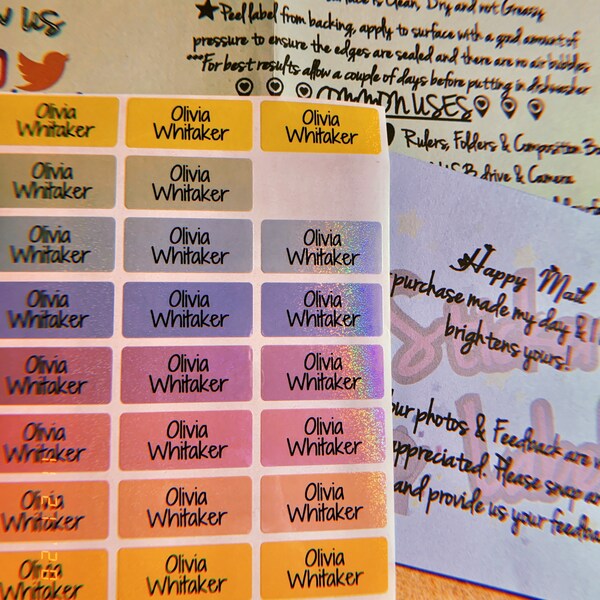 us
★Peel label from backing, apply to surface with a good amount of
pressure to ensure the edges are sealed and there are no air bubbles
***For best results allow a couple of days before putting in dishwasher
COMMON USES
Rulers, Folders & Composition
USB drive & Camera
Olivia
Whitaker
Olivia
Whitaker
Olivia
Whitaker
Olivia
Whitaker
Olivia
Whitaker
Olivia
Whitaker
Olivia
Whitaker
Olivia
Whitaker
Olivia
Whitaker
Olivia
Whitaker
Olivia
Whitaker
Olivia
Whitaker
Olivia
Whitaker
Olivia
Whitaker
Olivia
Whitaker
Olivia
Whitaker
Olivia
Whitaker
Olivia
Whitaker
Olivia
Whitaker
Olivia
Whitaker
Olivia
Whitaker
Olivia
Whitaker
Olivia
Whitaker
Happy Mail
purchase made my day & I
brightens yours!
photos & Feedback are
appreciated. Please snap
and provide us your